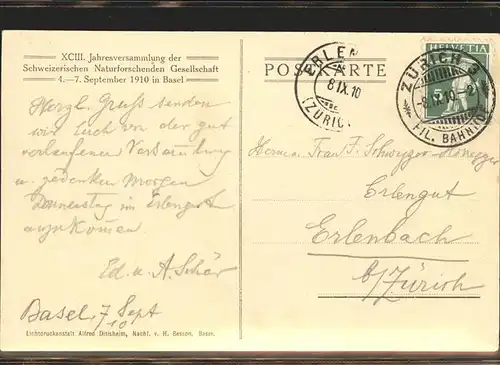 XCIII. Jahresversammlung der
Schweizerischen Naturforschenden Gesellschaft
4.—7. September 1910 in Basel
POSTKARTE
HELVETIA
5
ERLEN
8 IX 10
(ZÜRIC
ZÜRICH 3
-8.IX.10.-2
FIL. BAHNHO
Herzl. Gruss senden
wir Euch von der gut
verlaufenen Versammlung
u. gedenken Morgen
Donnerstag im Erlengut
anzukommen.
Ed. u. A. Schär
Basel, 7 Sept
10
Herrn u. Frau F. Schwyzer-Honegger
Erlengut
Erlenbach
b/Zürich
Lichtdruckanstalt Alfred Ditisheim, Nachf. v. H. Besson, Basel.